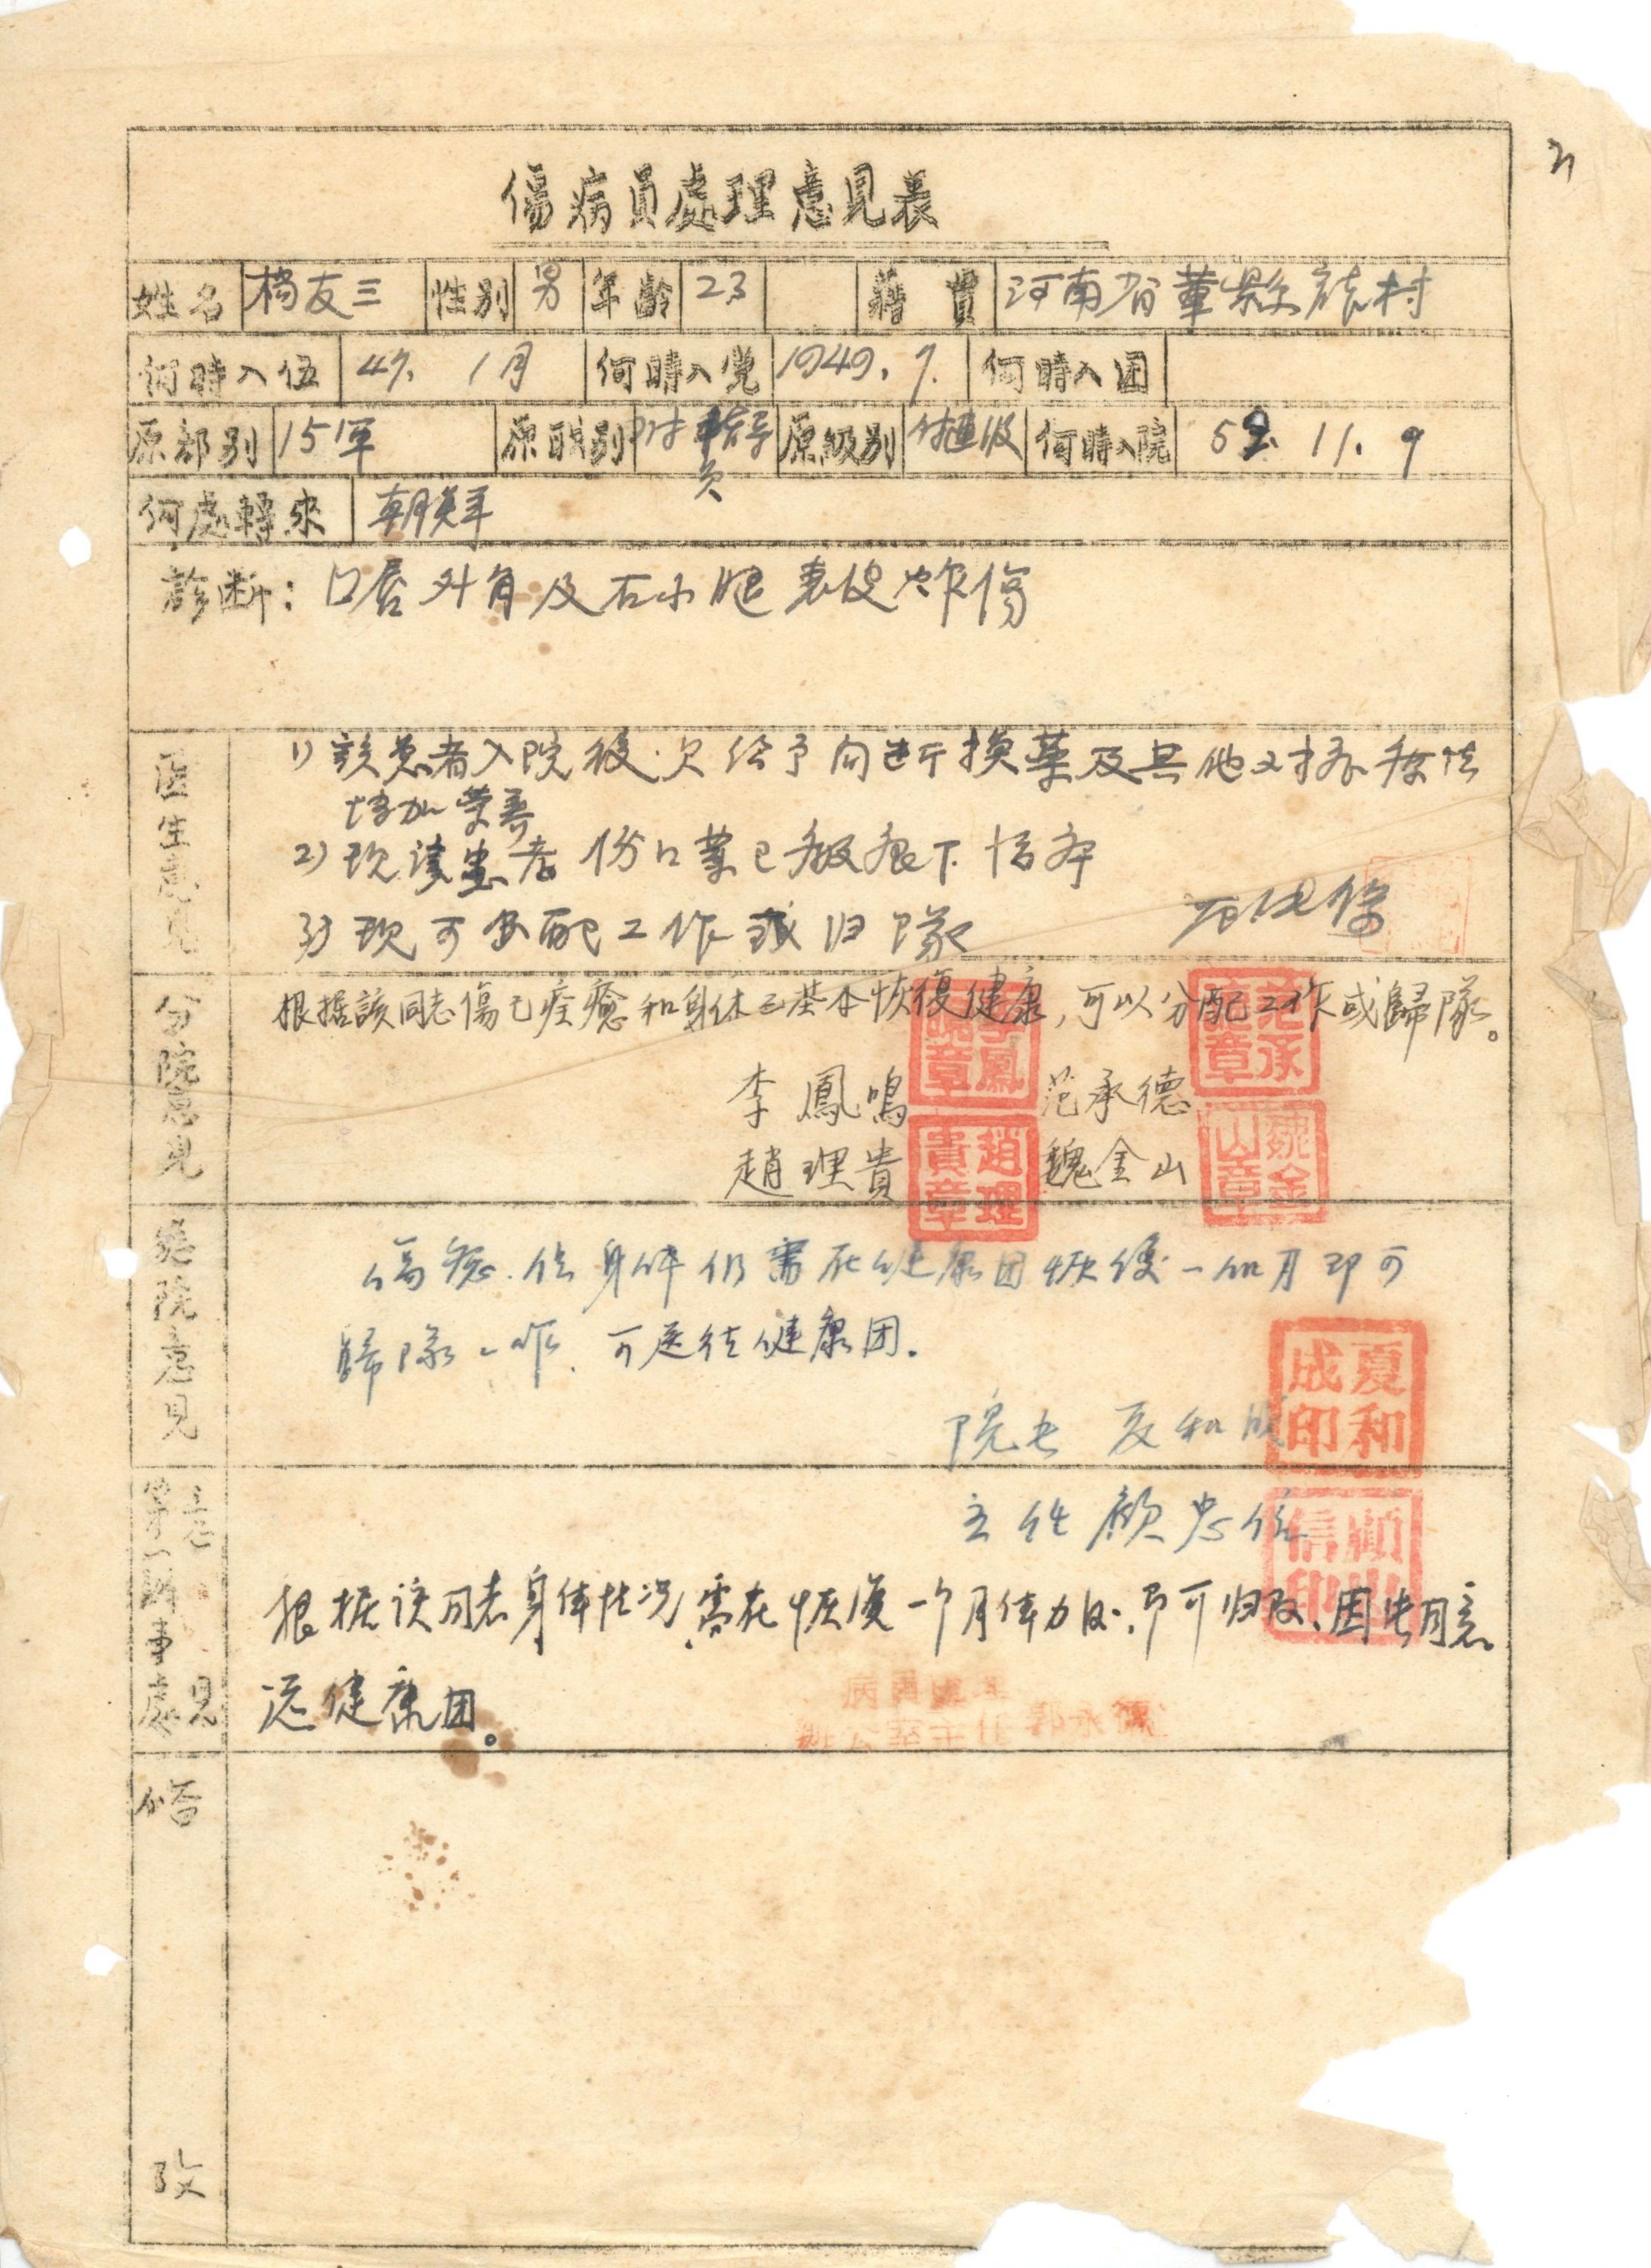 21
傷病員處理意見表
姓名 楊友三 性別 男 年齡 23 籍貫 河南省 縣 村
何時入伍 47. 1月 何時入党 1949. 7. 何時入团
原部別 15軍 原职別 付 指导员 原級別 何時入院 52. 11. 9
何處轉來 朝鲜
診断: 口唇外角及右小腿表皮炸傷
医生意見
1) 該患者入院後 给予 换藥及其他对 疗法
增加营养
2) 现該患者伤口 已
3) 现可分配工作或归隊
分院意見
根据該同志傷已痊癒和身体已基本恢復健康,可以分配工作或歸隊。
李鳳鳴 范承德
趙理貴 魏金山
趙理貴章 魏金山章
總院意見
傷癒.但身体仍需在健康团恢復一個月即可
歸隊工作.可送往健康团.
院长 夏和成
夏和成印
主任 顧忠信
意見
根据该同志身体状况,需在恢復一个月体力后,即可归队,因此同意
送健康团。
主任 郭永德
備
攷